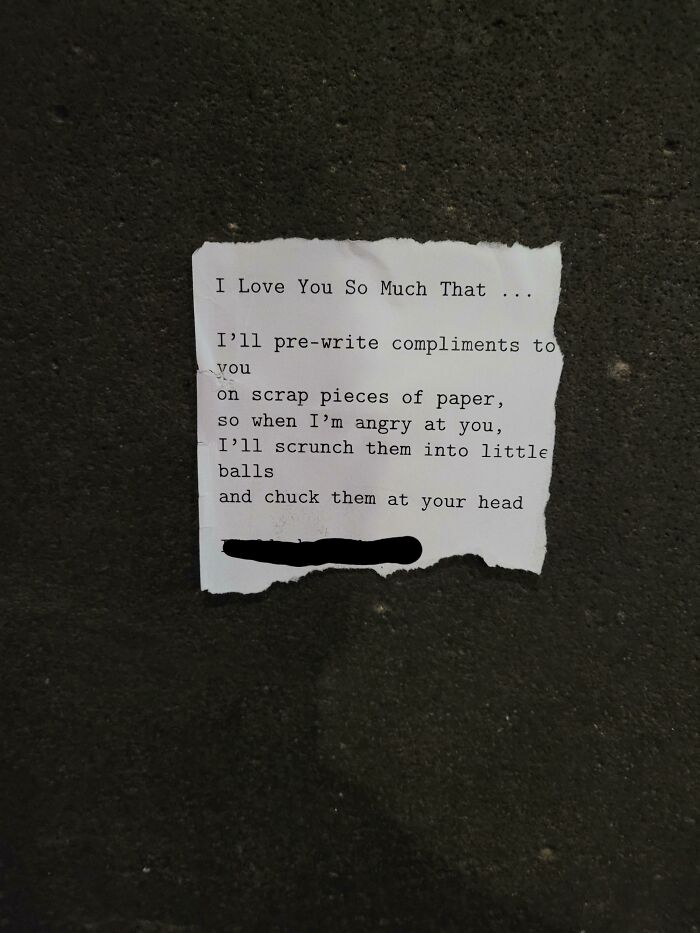 I Love You So Much That ...
I’ll pre-write compliments to
you
on scrap pieces of paper,
so when I’m angry at you,
I’ll scrunch them into little
balls
and chuck them at your head